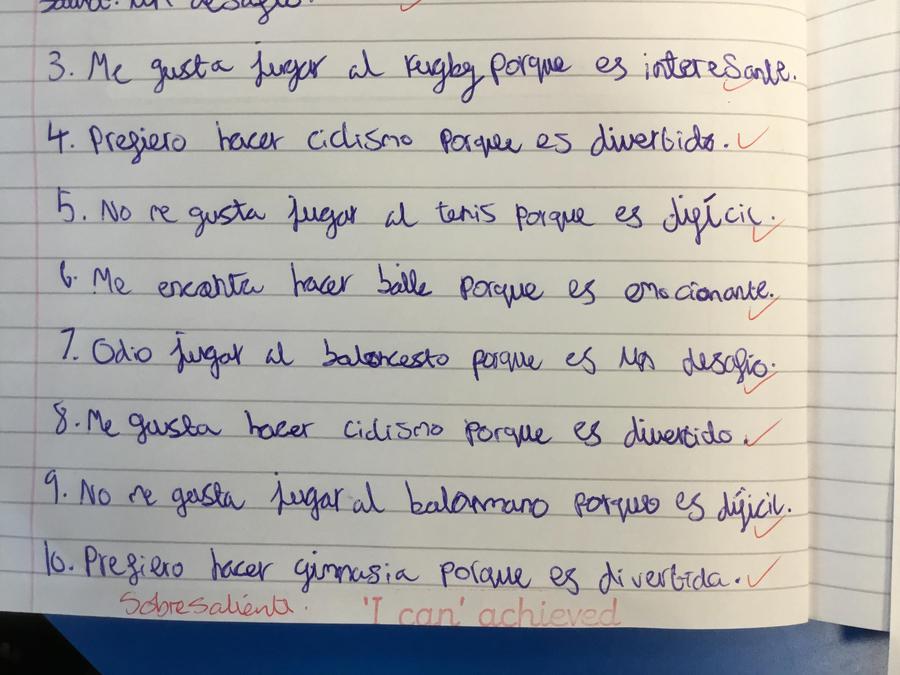 un desafío.
3. Me gusta jugar al rugby porque es interesante.
4. Prefiero hacer ciclismo porque es divertido.
5. No me gusta jugar al tenis porque es difícil.
6. Me encanta hacer baile porque es emocionante.
7. Odio jugar al baloncesto porque es un desafio.
8. Me gusta hacer ciclismo porque es divertido.
9. No me gusta jugar al balonmano porque es difícil.
10. Prefiero hacer gimnasia porque es divertida.
Sobresaliente. 'I can' achieved